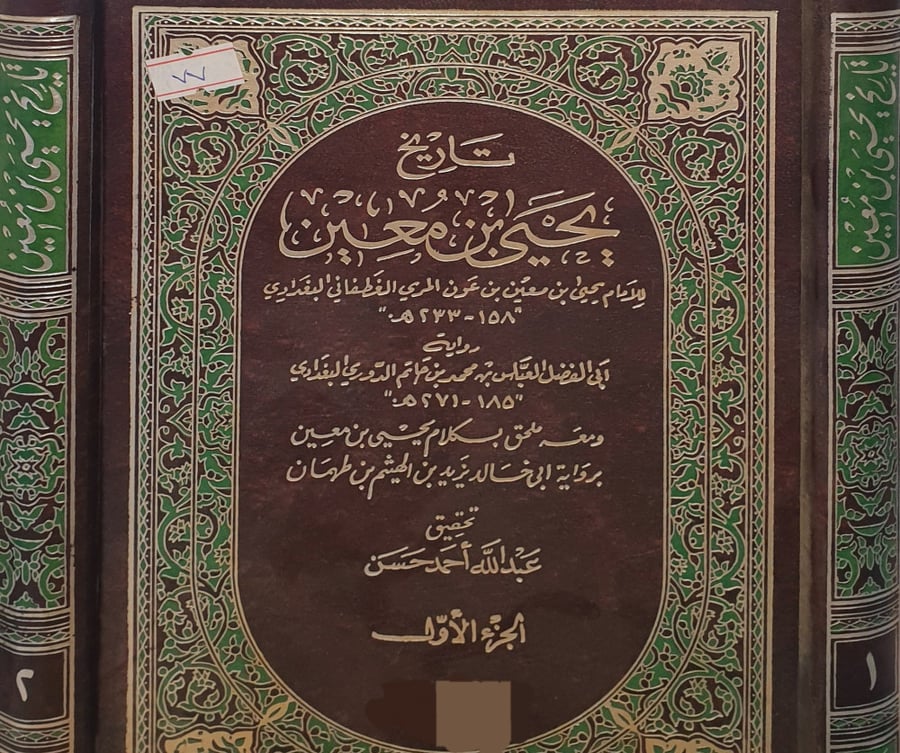 تاريخ
يحيى بن معين
للإمام يحيى بن معين بن عون المري الغطفاني البغدادي
"١٥٨-٢٣٣هـ"
رواية
أبي الفضل العباس بن محمد بن حاتم الدوري البغدادي
"١٨٥-٢٧١هـ"
ومعه ملحق بكلام يحيى بن معين
برواية ابي خالد يزيد بن الهيثم بن طهمان
تحقيق
عبدالله أحمد حسن
الجزء الأول
تاريخ يحيى بن معين
١
تاريخ يحيى بن معين
٢